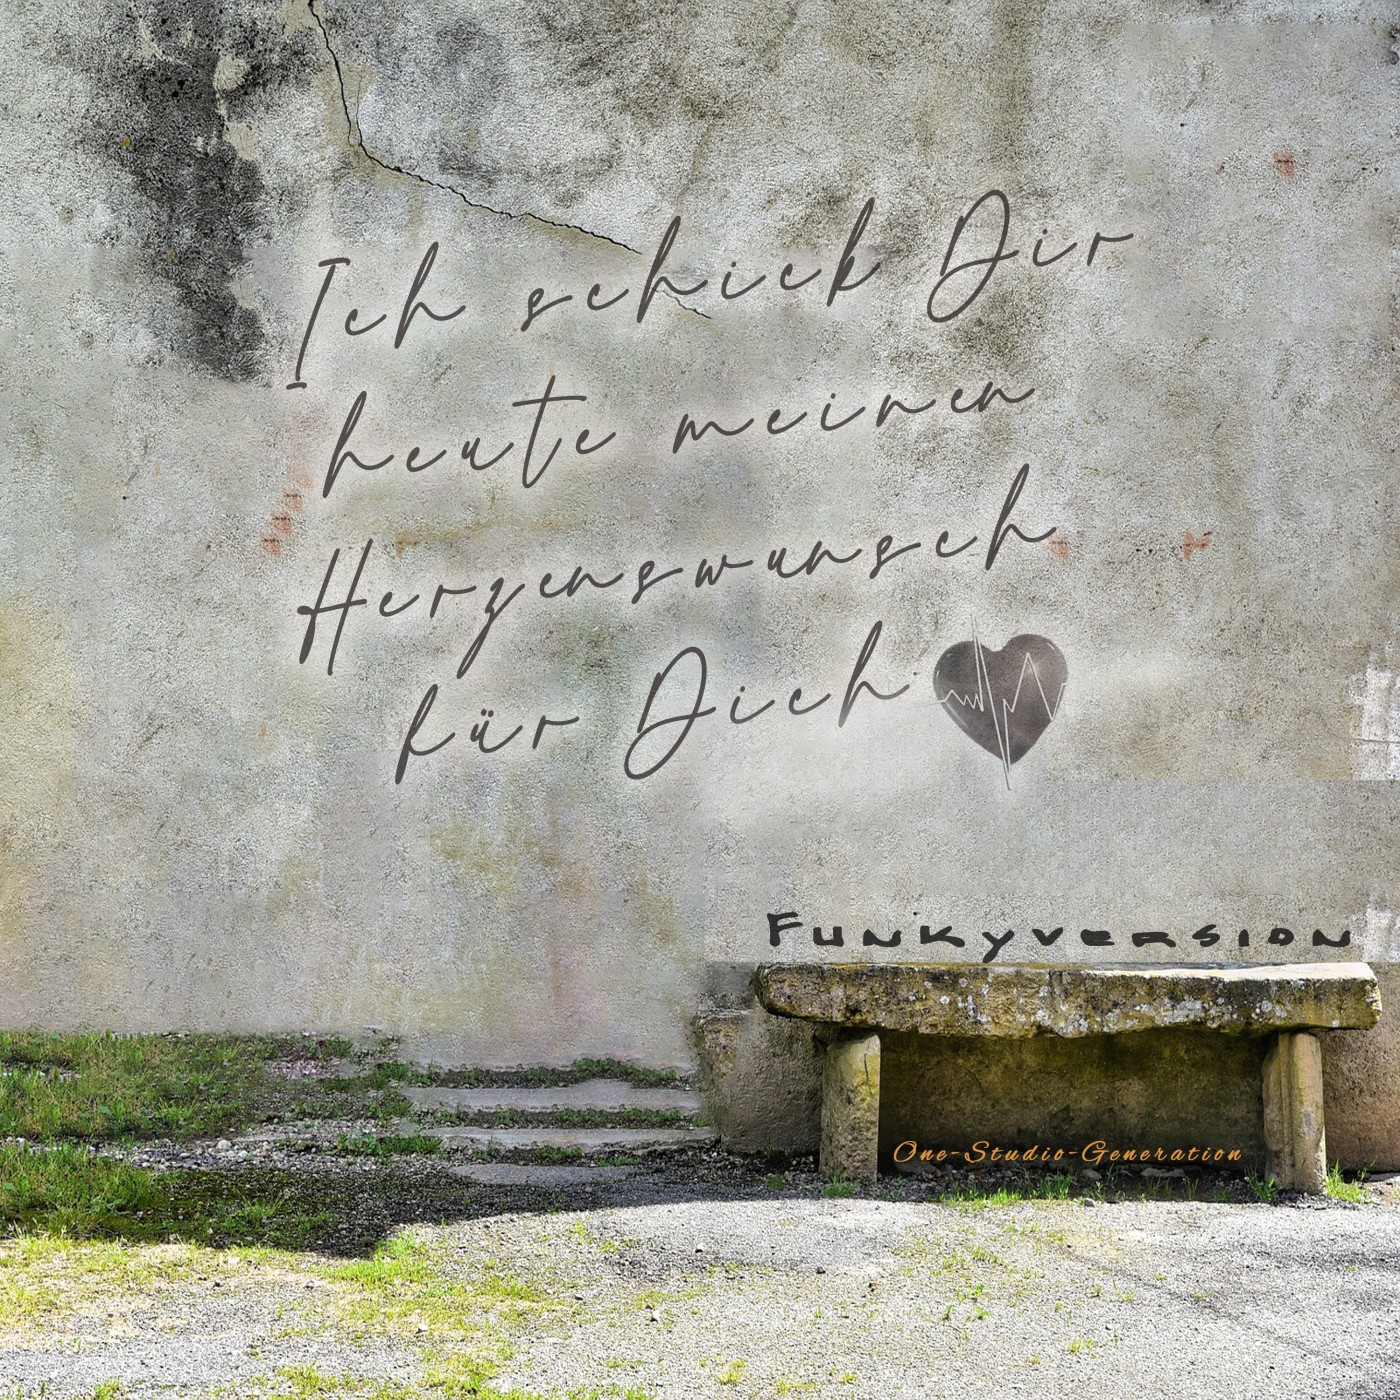 Ich schick Dir
heute meinen
Herzenswunsch
für Dich
Funkyversion
One-Studio-Generation